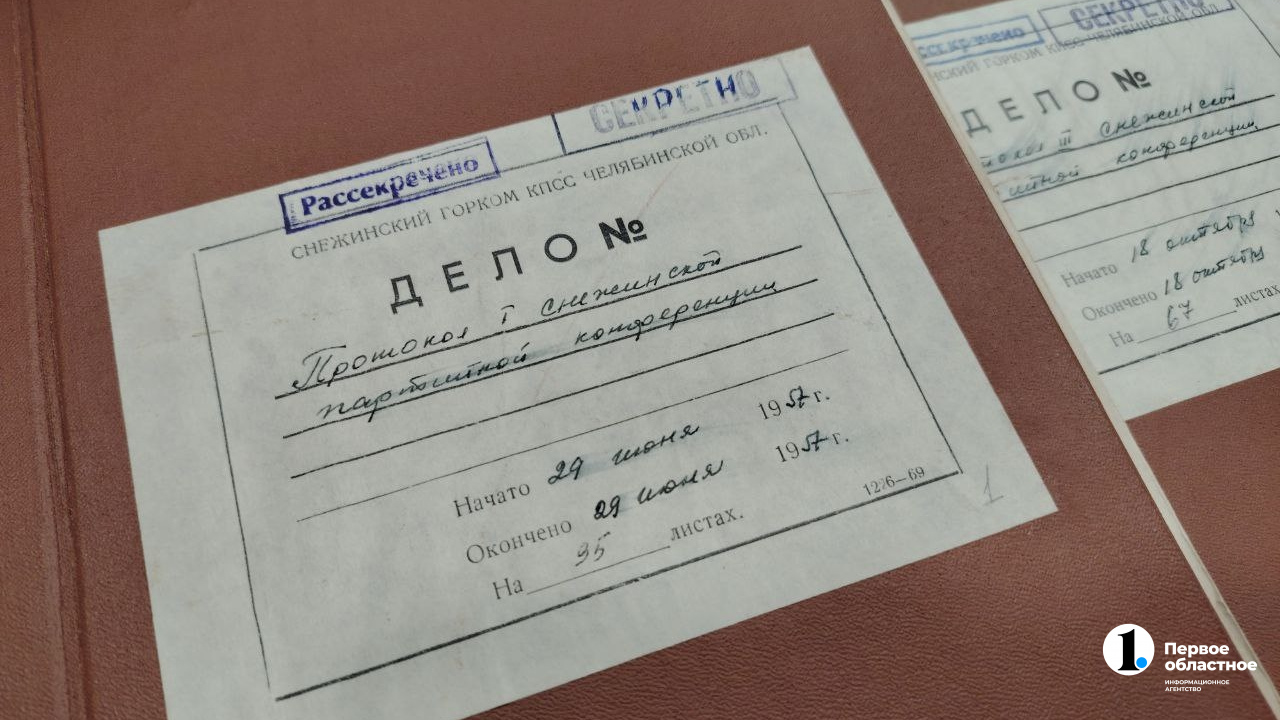 СЕКРЕТНО
Рассекречено
СНЕЖИНСКИЙ ГОРКОМ КПСС ЧЕЛЯБИНСКОЙ ОБЛ.
ДЕЛО №
Протокол I снежинской
партийной конференции
Начато 29 июня 1957 г.
Окончено 29 июня 1957 г.
На 95 листах.
1226—69
1
СЕКРЕТНО
ссекречено
нский ГОРКОМ КПСС ЧЕЛЯБИНСКОЙ ОБЛ.
ДЕЛО №
токол III снежинской
ийной конференции
Начато 18 октября
Окончено 18 октября
На 67 листах.
1.
Первое
областное
ИНФОРМАЦИОННОЕ
АГЕНТСТВО